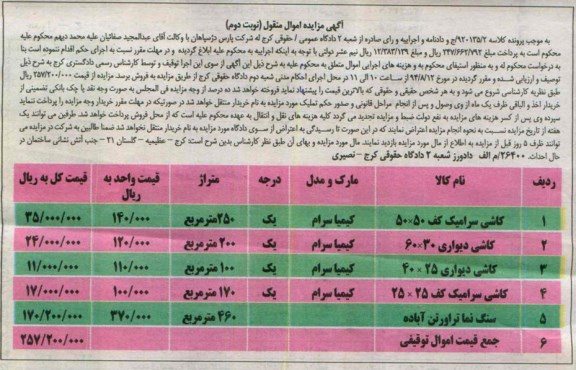 آگهی مزایده اموال منقول (نوبت دوم)
به موجب پرونده کلاسه ۹۲۰۱۳۵/۲ج و دادنامه و اجراییه و رای صادره از شعبه ۲ دادگاه عمومی / حقوقی کرج له شرکت پارس دژسپاهان با وکالت آقای عبدالمجید صفائیان علیه محمد دیهم محکوم علیه
محکوم است به پرداخت مبلغ ۲۴۷/۶۶۲/۷۹۲ ریال و مبلغ ۱۲/۳۸۳/۱۳۹ ریال نیم عشر دولتی با توجه به اینکه اجراییه به محکوم علیه ابلاغ گردیده و در مهلت مقرر نسبت به اجرای حکم اقدام ننموده است بنا
به درخواست محکوم له و به منظور استیفای محکوم به و هزینه های اجرایی اموال متعلق به محکوم علیه به شرح ذیل این آگهی از سوی این اجرا توقیف و توسط کارشناس رسمی دادگستری کرج به شرح ذیل
توصیف و ارزیابی شده و مقرر گردیده در مورخ ۹۴/۸/۱۲ از ساعت ۱۰ الی ۱۱ در محل اجرای احکام مدنی شعبه دوم دادگاه حقوقی کرج از طریق مزایده به فروش برسد. مزایده از قیمت ۲۵۷/۲۰۰/۰۰۰ ریال
طبق نظریه کارشناسی شروع می شود و به هر شخص حقیقی و حقوقی که بالاترین قیمت را پیشنهاد نماید فروخته خواهد شد ده درصد از وجه مزایده فی المجلس به صورت وجه نقد یا چک بانکی تضمینی از
خریدار اخذ و الباقی ظرف یک ماه از وی وصول و پس از انجام مراحل قانونی و صدور حکم تملیک مورد مزایده به نام خریدار منتقل خواهد شد در صورتیکه در مهلت مقرر خریدار وجه مزایده را پرداخت ننماید
سپرده وی پس از کسر هزینه های مزایده به نفع دولت ضبط و مزایده تجدید می گردد کلیه هزینه های نقل و انتقال به عهده محکوم علیه است که از محل فروش پرداخت خواهد شد. طرفین می توانند یک
هفته از تاریخ مزایده نسبت به نحوه انجام مزایده اعتراض نمایند که در این صورت تا رسیدگی به اعتراض از سوی دادگاه مورد مزایده به نام خریدار منتقل نخواهد شد ضمنا طالبین به شرکت در مزایده می
توانند ظرف ۵ روز قبل از مزایده به اطلاع از مال مورد مزایده بازدید نمایند. مال مورد مزایده و بهای آن طبق نظر کارشناسی بدین شرح است: کرج – عظیمیه – گلستان ۲۱ – جنب آتش نشانی ساختمان در
حال احداث. ۲۶۴۰۰/م الف دادورز شعبه ۲ دادگاه حقوقی کرج – نصیری
ردیف نام کالا مارک و مدل درجه متراژ قیمت واحد به ریال قیمت کل به ریال
۱ کاشی سرامیک کف ۵۰×۵۰ کیمیا سرام یک ۲۵۰مترمربع ۱۴۰/۰۰۰ ۳۵/۰۰۰/۰۰۰
۲ کاشی دیواری ۳۰×۶۰ کیمیا سرام یک ۲۰۰ مترمربع ۱۲۰/۰۰۰ ۲۴/۰۰۰/۰۰۰
۳ کاشی دیواری ۲۵ × ۴۰ کیمیا سرام یک ۱۰۰ مترمربع ۱۱۰/۰۰۰ ۱۱/۰۰۰/۰۰۰
۴ کاشی سرامیک کف ۲۵ × ۲۵ کیمیا سرام یک ۱۷۰ مترمربع ۱۰۰/۰۰۰ ۱۷/۰۰۰/۰۰۰
۵ سنگ نما تراورتن آباده ۴۶۰ مترمربع ۳۷۰/۰۰۰ ۱۷۰/۲۰۰/۰۰۰
۶ جمع قیمت اموال توقیفی ۲۵۷/۲۰۰/۰۰۰